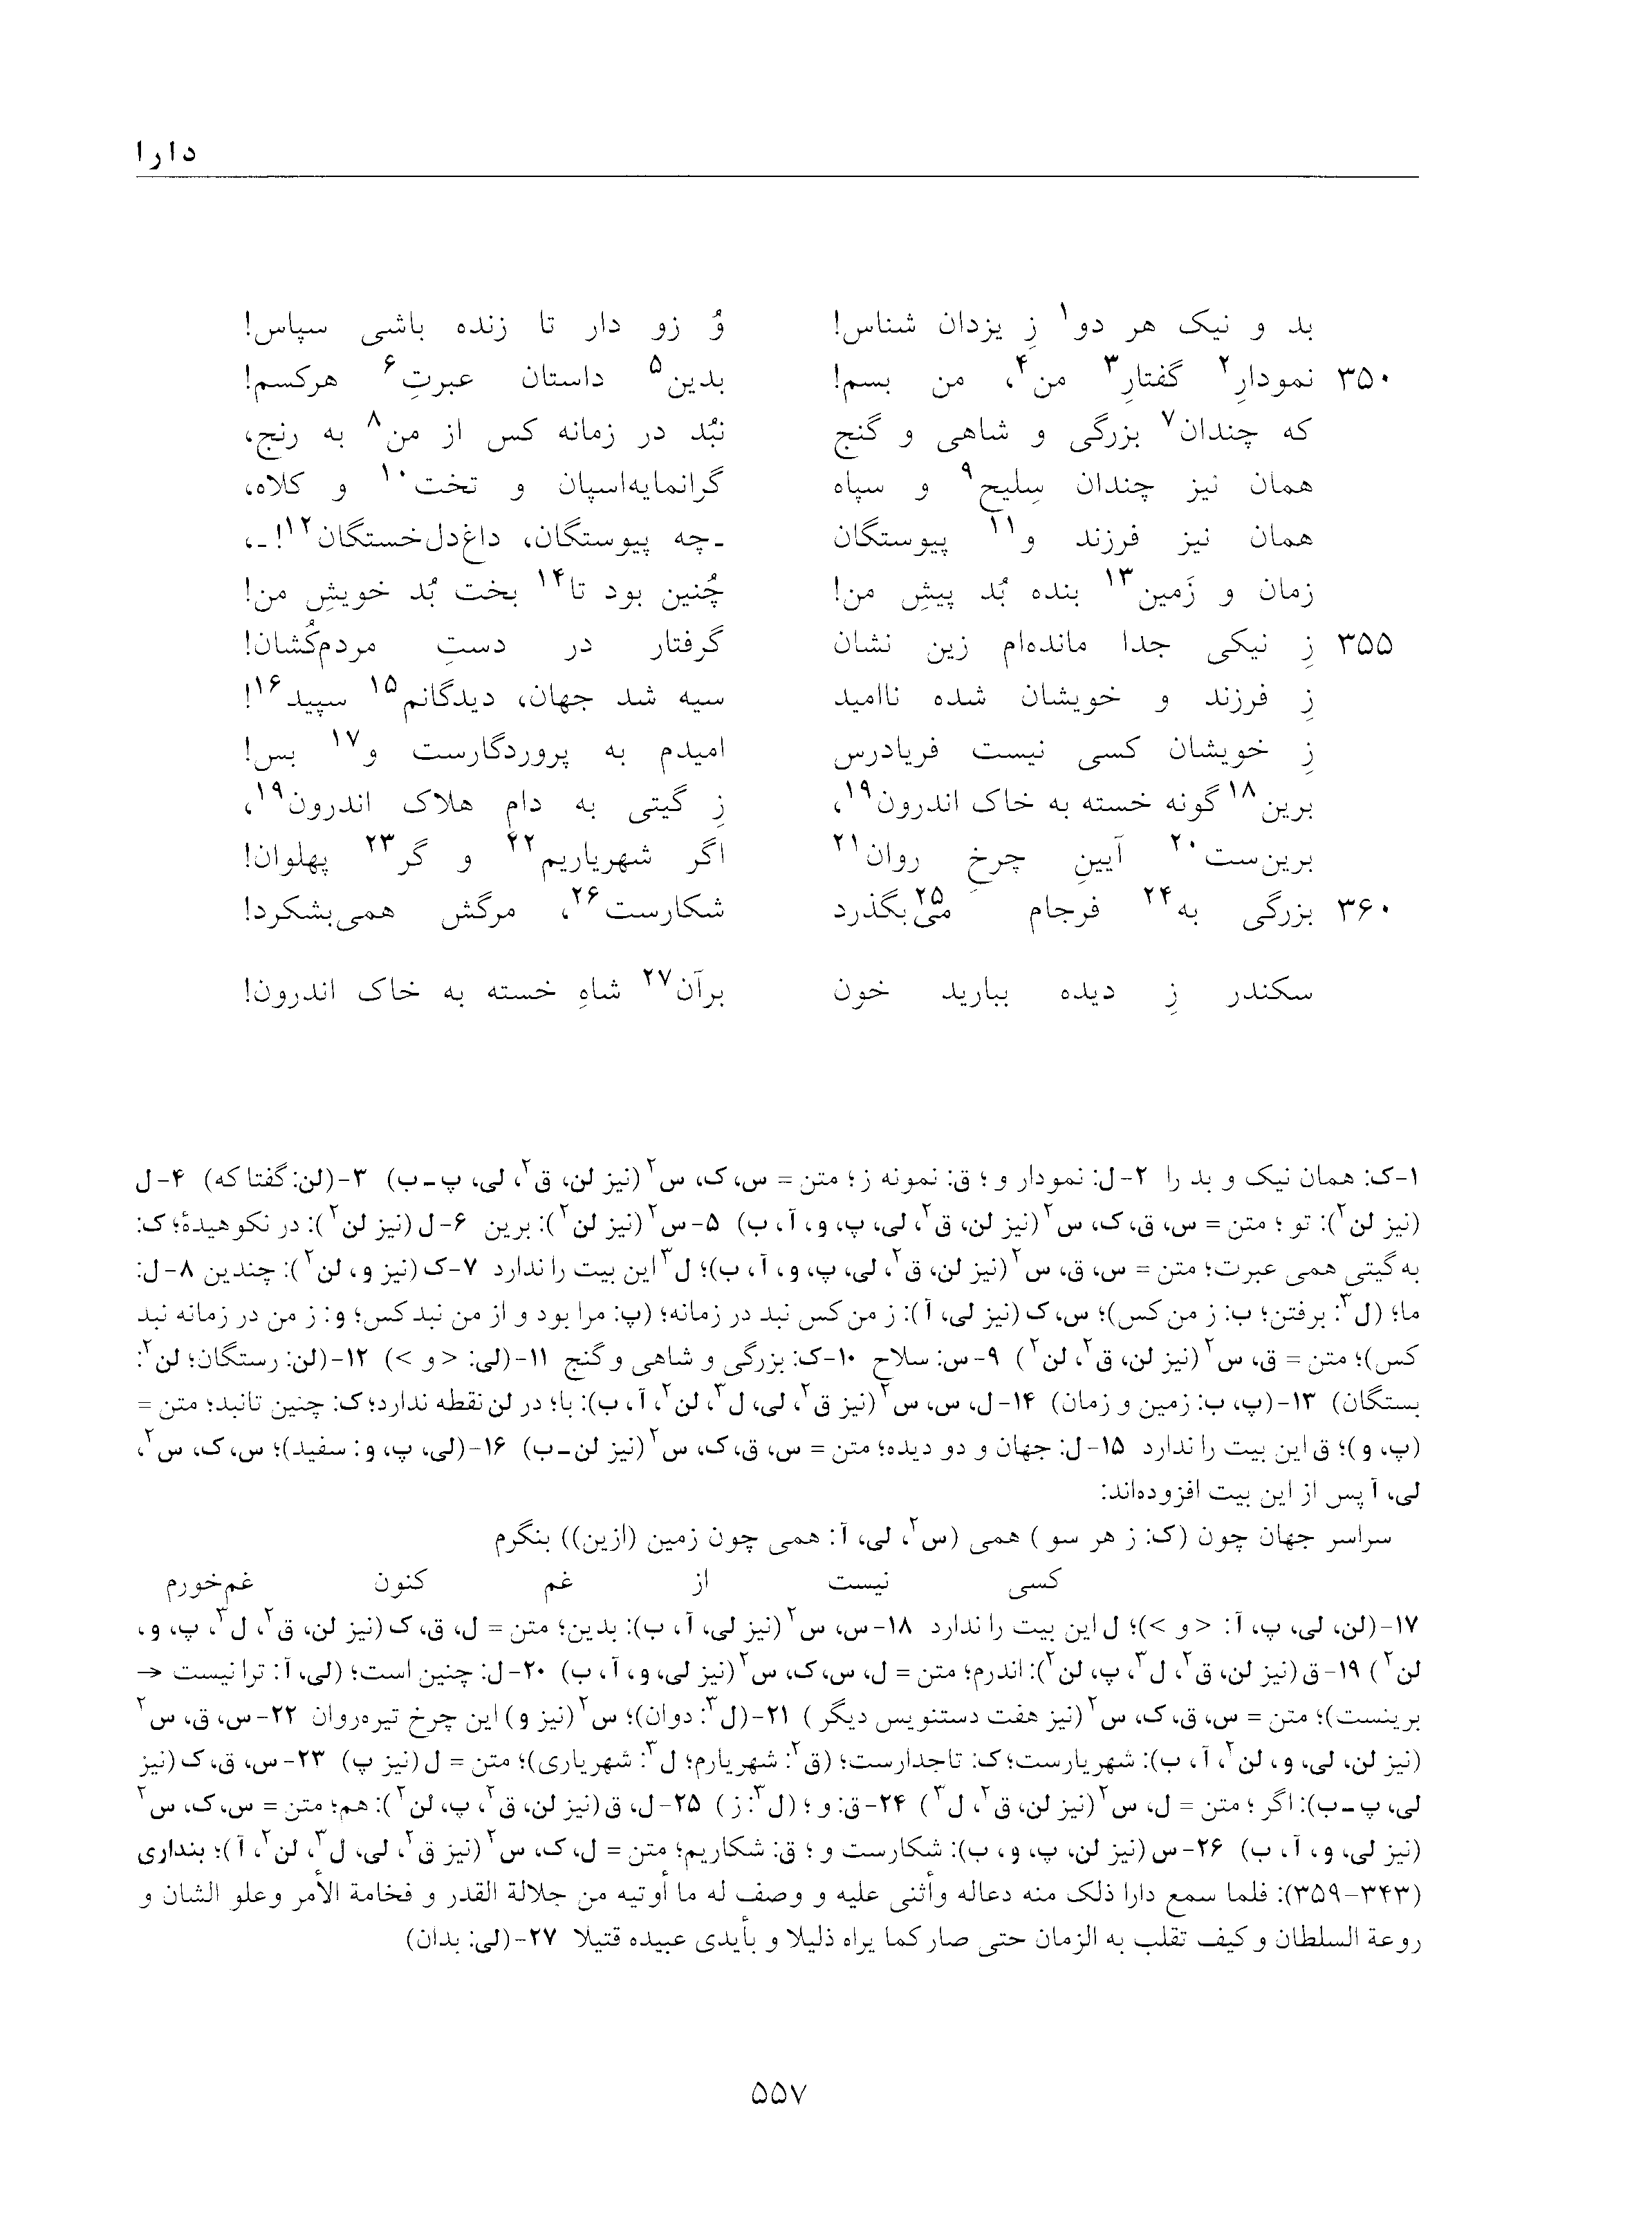 دارا
بد و نیک هر دو۱ زِ یزدان شناس! وُ زو دار تا زنده باشی سپاس!
۳۵۰ نمودارِ۲ گفتارِ۳ من۴، من بسم! بدین۵ داستان عبرتِ۶ هرکسم!
که چندان۷ بزرگی و شاهی و گنج نبُد در زمانه کس از من۸ به رنج،
همان نیز چندان سِلیح۹ و سپاه گرانمایه‌اسپان و تخت۱۰ و کلاه،
همان نیز فرزند و۱۱ پیوستگان ـ چه پیوستگان، داغ‌دل‌خستگان۱۲! ـ،
زمان و زَمین۱۳ بنده بُد پیشِ من! چُنین بود تا۱۴ بخت بُد خویشِ من!
۳۵۵ زِ نیکی جدا مانده‌ام زین نشان گرفتار در دستِ مردم‌کُشان!
زِ فرزند و خویشان شده ناامید سیه شد جهان، دیدگانم۱۵ سپید۱۶!
زِ خویشان کسی نیست فریادرس امیدم به پروردگارست و۱۷ بس!
برین۱۸ گونه خسته به خاک اندرون۱۹، زِ گیتی به دامِ هلاک اندرون۱۹،
برین‌ست۲۰ آیینِ چرخِ روان۲۱ اگر شهریاریم۲۲ و گر۲۳ پهلوان!
۳۶۰ بزرگی به۲۴ فرجام می‌۲۵بگذرد شکارست۲۶، مرگش همی‌بشکرد!
سکندر زِ دیده ببارید خون برآن۲۷ شاهِ خسته به خاک اندرون!
۱-ک: همان نیک و بد را ۲-ل: نمودار و؛ ق: نمونه ز؛ متن = س، ک، س۲ (نیز لن، ق۲، لی، پ-ب) ۳-(لن: گفتا که) ۴-ل
(نیز لن۲): تو؛ متن = س، ق، ک، س۲ (نیز لن، ق۲، لی، پ، و، آ، ب) ۵-س۲ (نیز لن۲): برین ۶-ل (نیز لن۲): در نکوهیدهٔ؛ ک:
به گیتی همی عبرت؛ متن = س، ق، س۲ (نیز لن، ق۲، لی، پ، و، آ، ب)؛ ل۳ این بیت را ندارد ۷-ک (نیز و، لن۲): چندین ۸-ل:
ما؛ (ل۳: برفتن؛ ب: ز من کس)؛ س، ک (نیز لی، آ): ز من کس نبد در زمانه؛ (پ: مرا بود و از من نبد کس؛ و: ز من در زمانه نبد
کس)؛ متن = ق، س۲ (نیز لن، ق۲، لن۲) ۹-س: سلاح ۱۰-ک: بزرگی و شاهی و گنج ۱۱-(لی: <و>) ۱۲-(لن: رستگان؛ لن۲:
بستگان) ۱۳-(پ، ب: زمین و زمان) ۱۴-ل، س، س۲ (نیز ق۲، لی، ل۳، لن۲، آ، ب): با؛ در لن نقطه ندارد؛ ک: چنین تانبد؛ متن =
(پ، و)؛ ق این بیت را ندارد ۱۵-ل: جهان و دو دیده؛ متن = س، ق، ک، س۲ (نیز لن-ب) ۱۶-(لی، پ، و: سفید)؛ س، ک، س۲،
لی، آ پس از این بیت افزوده‌اند:
سراسر جهان چون (ک: ز هر سو) همی (س۲، لی، آ: همی چون زمین (ازین)) بنگرم
کسی نیست از غم کنون غم‌خورم
۱۷-(لن، لی، پ، آ: <و>)؛ ل این بیت را ندارد ۱۸-س، س۲ (نیز لی، آ، ب): بدین؛ متن = ل، ق، ک (نیز لن، ق۲، ل۳، پ، و،
لن۲) ۱۹-ق (نیز لن، ق۲، ل۳، پ، لن۲): اندرم؛ متن = ل، س، ک، س۲ (نیز لی، و، آ، ب) ۲۰-ل: چنین است؛ (لی، آ: ترا نیست →
برینست)؛ متن = س، ق، ک، س۲ (نیز هفت دستنویس دیگر) ۲۱-(ل۳: دوان)؛ س۲ (نیز و) این چرخ تیره‌روان ۲۲-س، ق، س۲
(نیز لن، لی، و، لن۲، آ، ب): شهریارست؛ ک: تاجدارست؛ (ق۲: شهریارم؛ ل۳: شهریاری)؛ متن = ل (نیز پ) ۲۳-س، ق، ک (نیز
لی، پ-ب): اگر؛ متن = ل، س۲ (نیز لن، ق۲، ل۳) ۲۴-ق: و؛ (ل۳: ز) ۲۵-ل، ق (نیز لن، ق۲، پ، لن۲): هم؛ متن = س، ک، س۲
(نیز لی، و، آ، ب) ۲۶-س (نیز لن، پ، و، ب): شکارست و؛ ق: شکاریم؛ متن = ل، ک، س۲ (نیز ق۲، لی، ل۳، لن۲، آ)؛ بنداری
(۳۴۳-۳۵۹): فلما سمع دارا ذلک منه دعاله وأثنی علیه و وصف له ما أوتیه من جلالة القدر و فخامة الأمر وعلو الشان و
روعة السلطان و کیف تقلب به الزمان حتی صار کما یراه ذلیلا و بأیدی عبیده قتیلا ۲۷-(لی: بدان)
۵۵۷